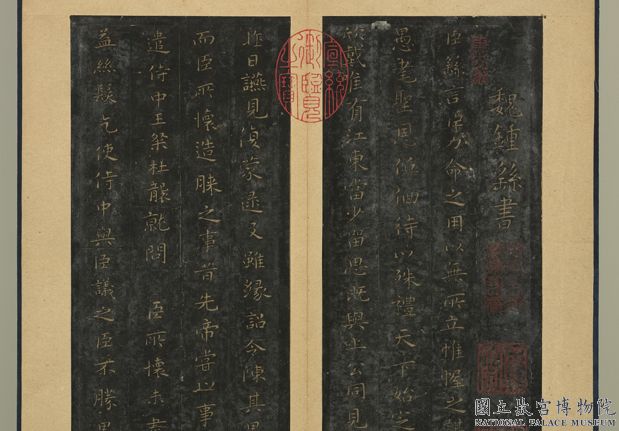 魏鍾繇書
臣繇言臣力命之用以無所立帷幄之
愚耄聖恩低佪待以殊禮天下始定
戴惟有江東當少留思既與上公同見
昨日讌見復蒙逮及雖緣詔令陳其愚
而臣所懷造膝之事昔先帝嘗以事
遣侍中王粲杜襲就問 臣所懷未盡
益絲髮乞使侍中與臣議之臣不勝
宣統御覽之寶
國立故宮博物院
NATIONAL PALACE MUSEUM